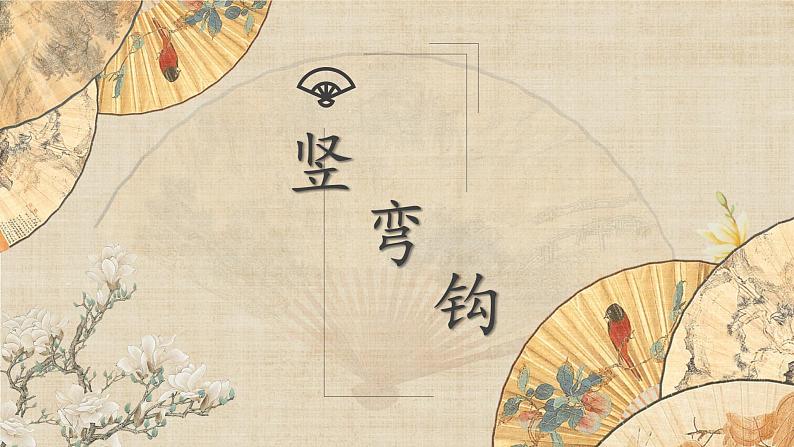 竖弯钩